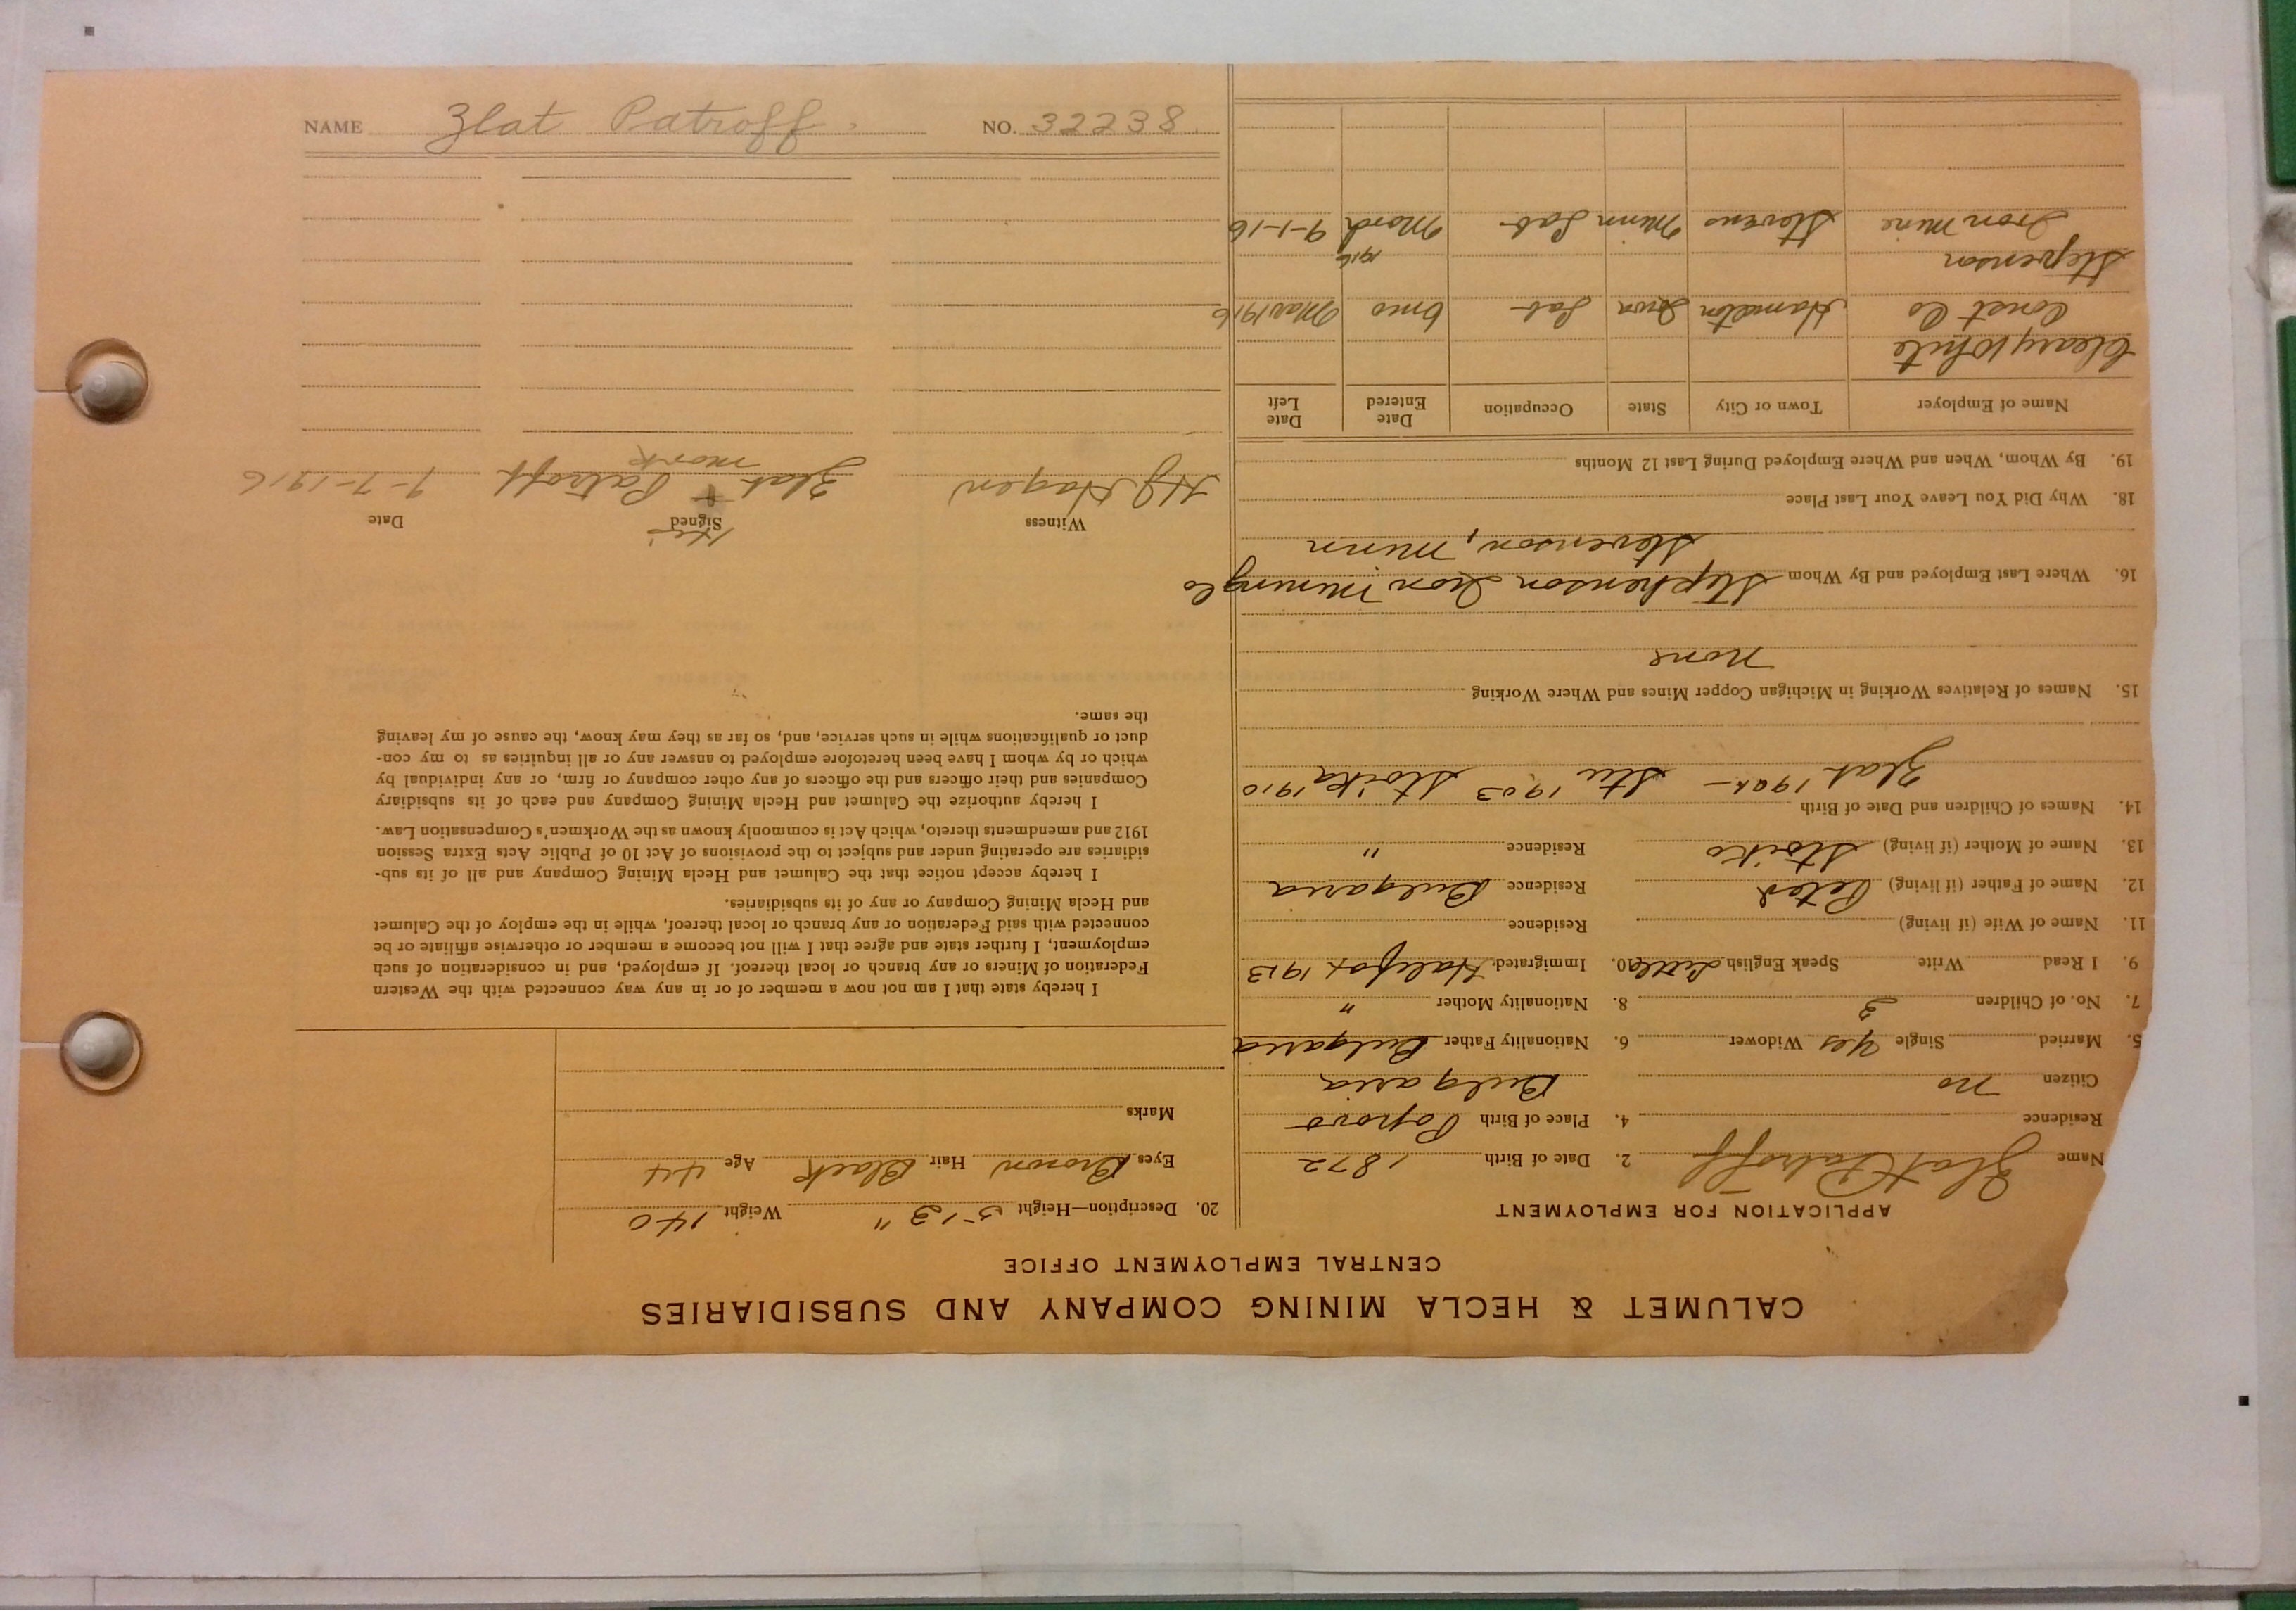 CALUMET & HECLA MINING COMPANY AND SUBSIDIARIES
CENTRAL EMPLOYMENT OFFICE
APPLICATION FOR EMPLOYMENT
Name Zlat Patroff 2. Date of Birth 1872
Residence 4. Place of Birth Popovo
Citizen no Bulgaria
5. Married Single Yes Widower 6. Nationality Father Bulgaria
7. No. of Children 3 8. Nationality Mother "
9. I Read Write Speak English Little 10. Immigrated Halifax 1913
11. Name of Wife (if living) Residence
12. Name of Father (if living) Residence Bulgaria
13. Name of Mother (if living) Stoiko Residence "
14. Names of Children and Date of Birth
Zlat Stu 1903 Stoika 1910
15. Names of Relatives Working in Michigan Copper Mines and Where Working
none
16. Where Last Employed and By Whom Stephenson Iron Mining Co
Stevenson, Minn
18. Why Did You Leave Your Last Place
19. By Whom, When and Where Employed During Last 12 Months
Name of Employer Town or City State Occupation Date Entered Date Left
Cleary White
Const Co Hamelton Iowa Lab 6 mos Mar 1916
Stepvenson 1916
Iron Mine Stevens Minn Lab March 9-1-16
20. Description—Height 5-13" Weight 140
Eyes Brown Hair Black Age 44
Marks
I hereby state that I am not now a member of or in any way connected with the Western
Federation of Miners or any branch or local thereof. If employed, and in consideration of such
employment, I further state and agree that I will not become a member or otherwise affiliate or be
connected with said Federation or any branch or local thereof, while in the employ of the Calumet
and Hecla Mining Company or any of its subsidiaries.
I hereby accept notice that the Calumet and Hecla Mining Company and all of its sub-
sidiaries are operating under and subject to the provisions of Act 10 of Public Acts Extra Session
1912 and amendments thereto, which Act is commonly known as the Workmen's Compensation Law.
I hereby authorize the Calumet and Hecla Mining Company and each of its subsidiary
Companies and their officers and the officers of any other company or firm, or any individual by
which or by whom I have been heretofore employed to answer any or all inquiries as to my con-
duct or qualifications while in such service, and, so far as they may know, the cause of my leaving
the same.
Witness Signed Date
his
H J Hagen Zlat + Patroff 9-7-1916
mark
NAME Zlat Patroff. NO. 32238